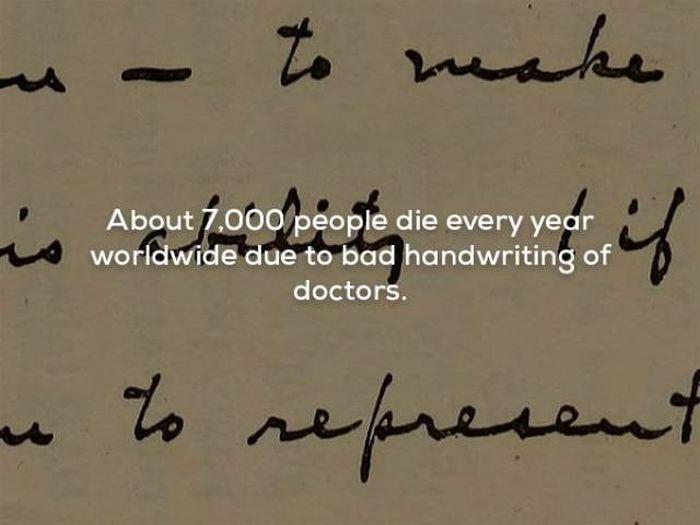 us — to make
is ability ( if
About 7,000 people die every year
worldwide due to bad handwriting of
doctors.
us to represent